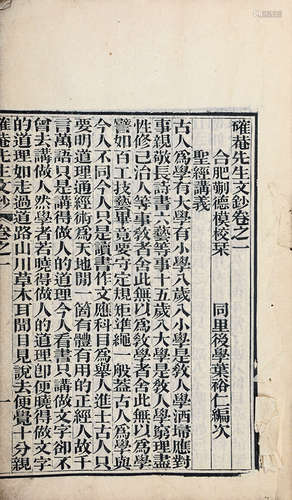 確菴先生文鈔卷之一
合肥蒯德模校栞 同里後學葉裕仁編次
聖經講義
古人為學有大學有小學八歲入小學是敎人學洒埽應對
事親敬長詩書六藝等事十五歲入大學是敎人學窮理盡
性修己治人等事敎者舍此無以為敎學者舍此無以為學
譬如百工技藝畢竟要守定規矩準繩一般蓋古人為學與
今人不同今人只是讀書作文應科目為舉人進士古人只
要明道理通經術為天地閒一箇有體有用的正經人故千
言萬語只是講得做人的道理今人看書只講做文字卻不
曾去講做人然學者若曉得做人的道理卽便曉得做文字
的道理如走過道路山川草木耳聞目見說去便覺十分親
確菴先生文鈔 卷之一 一